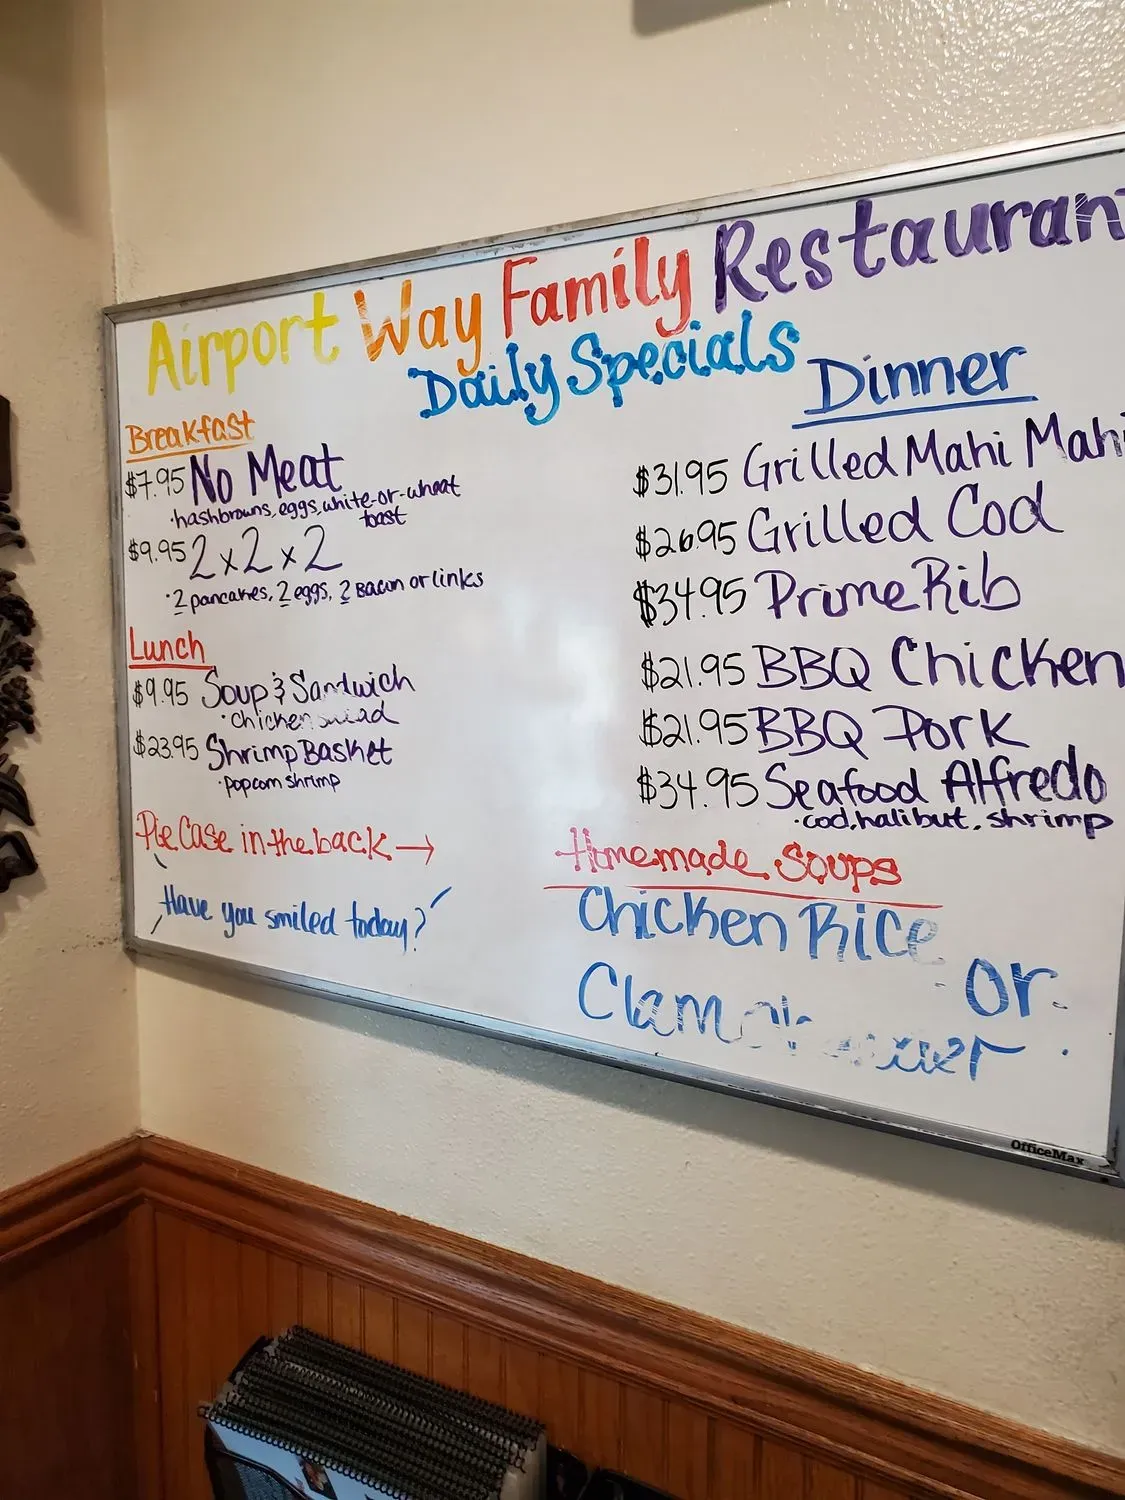 Airport Way Family Restaurant
Daily Specials
Breakfast
$7.95 No Meat
·hashbrowns, eggs, white-or-wheat
toast
$9.95 2x2x2
·2 pancakes, 2 eggs, 2 Bacon or links
Lunch
$9.95 Soup & Sandwich
·chicken salad
$23.95 Shrimp Basket
·popcorn shrimp
Pie Case in the back →
Have you smiled today?
Dinner
$31.95 Grilled Mahi Mahi
$26.95 Grilled Cod
$34.95 Prime Rib
$21.95 BBQ Chicken
$21.95 BBQ Pork
$34.95 Seafood Alfredo
·cod, halibut, shrimp
Homemade Soups
Chicken Rice
or
Clam
OfficeMax